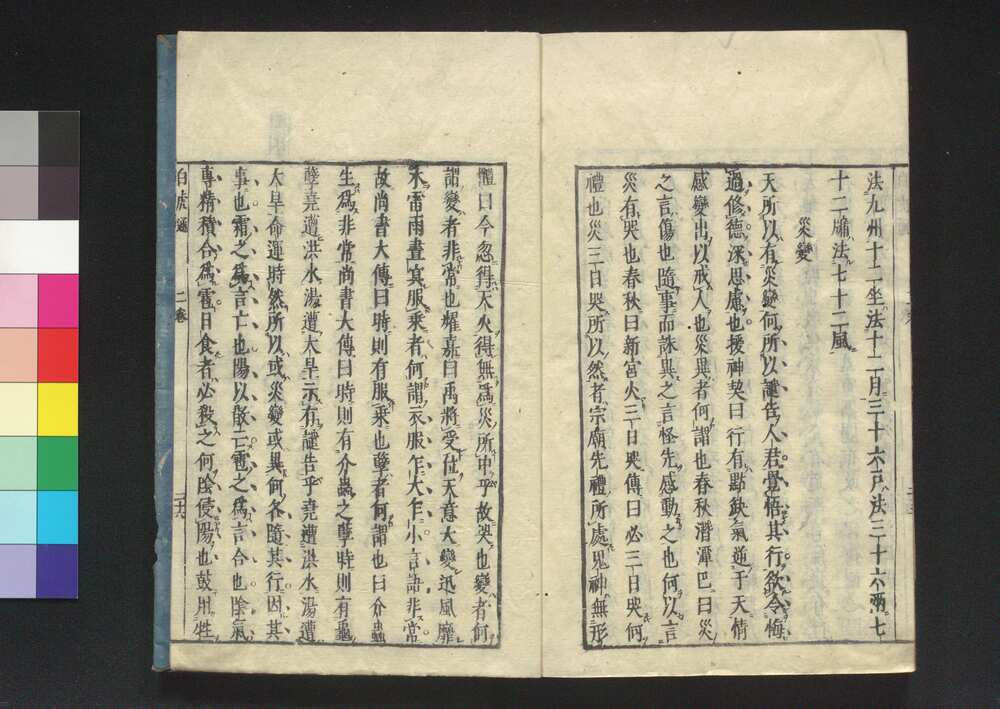 法九州十二坐法十二月三十六戸法三十六雨七
十二牖法七十二風
災變
天所以有災變何所以譴告人君覺悟其行欲令悔
過修德深思慮也援神契曰行有點缺氣逆于天情
感變出以戒人也災異者何謂也春秋潛潭巴曰災
之言傷也隨事而誅異之言怪先感動之也何以言
災有哭也春秋曰新宮火三日哭傳曰必三日哭何
禮也災三日哭所以然者宗廟先禮所處鬼神無形
體曰今忽得天火得無爲災所中乎故哭也變者何
謂變者非常也耀嘉曰禹將受位天意大變迅風靡
木雷雨晝冥服乘者何謂衣服乍大乍小言語非常
故尚書大傳曰時則有服乘也孽者何謂也曰介蟲
生爲非常尚書大傳曰時則有介蟲之孽時則有龜
孽堯遭洪水湯遭大旱示有譴告乎堯遭洪水湯遭
大旱命運時然所以或災變或異何各隨其行因其
事也霜之爲言亡也陽以散亡雹之爲言合也陰氣
專精積合爲雹日食者必殺之何陰侵陽也鼓用牲
白虎通 二卷 二十六